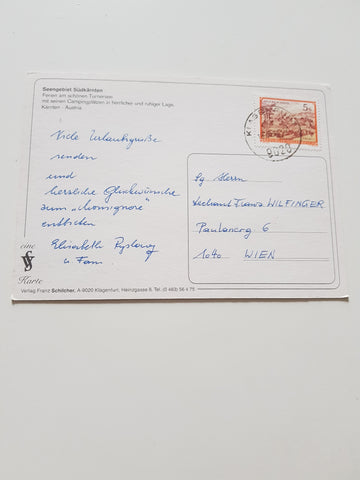 Seengebiet Südkärnten
Ferien am schönen Turnersee
mit seinen Campingplätzen in herrlicher und ruhiger Lage.
Kärnten - Austria
5 S
9020
Viele Urlaubsgrüße
senden
und
herzliche Glückwünsche
zum „Monsignore"
entbieten
Elisabeth
u. Fam.
Sg. Herrn
Dechant Franz WILFINGER
Paulanerg 6
1040 WIEN
eine
Karte
Verlag Franz Schilcher, A-9020 Klagenfurt, Heinzgasse 8, Tel. (0 463) 56 4 75